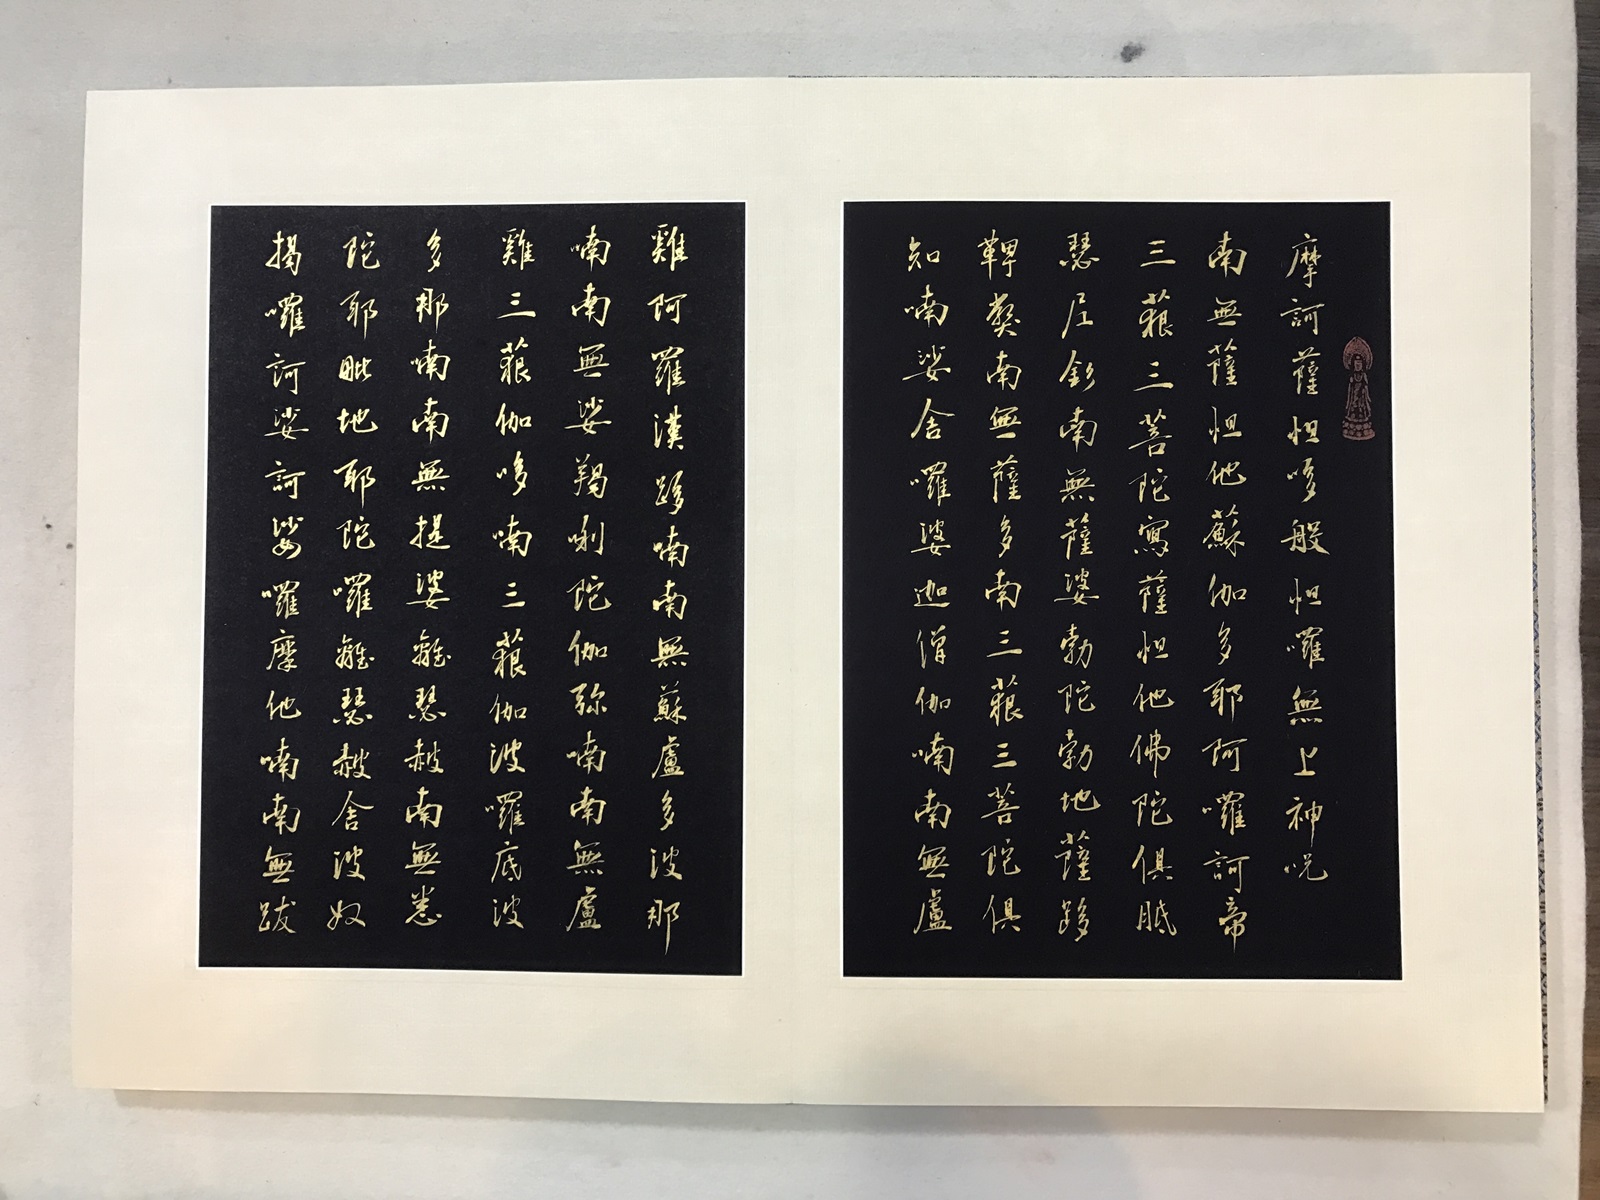 摩訶薩怛哆般怛囉無上神呪
南無薩怛他蘇伽多耶阿囉訶帝
三藐三菩陀寫薩怛他佛陀俱胝
瑟尼釤南無薩婆勃陀勃地薩跢
鞞弊南無薩多南三藐三菩陀俱
知喃娑舍囉婆迦僧伽喃南無盧
雞阿羅漢跢喃南無蘇盧多波那
喃南無娑羯唎陀伽彌喃南無盧
雞三藐伽哆喃三藐伽波囉底波
多那喃南無提婆離瑟赧南無悉
陀耶毗地耶陀囉離瑟赧舍波奴
揭囉訶娑訶娑囉摩他喃南無跋